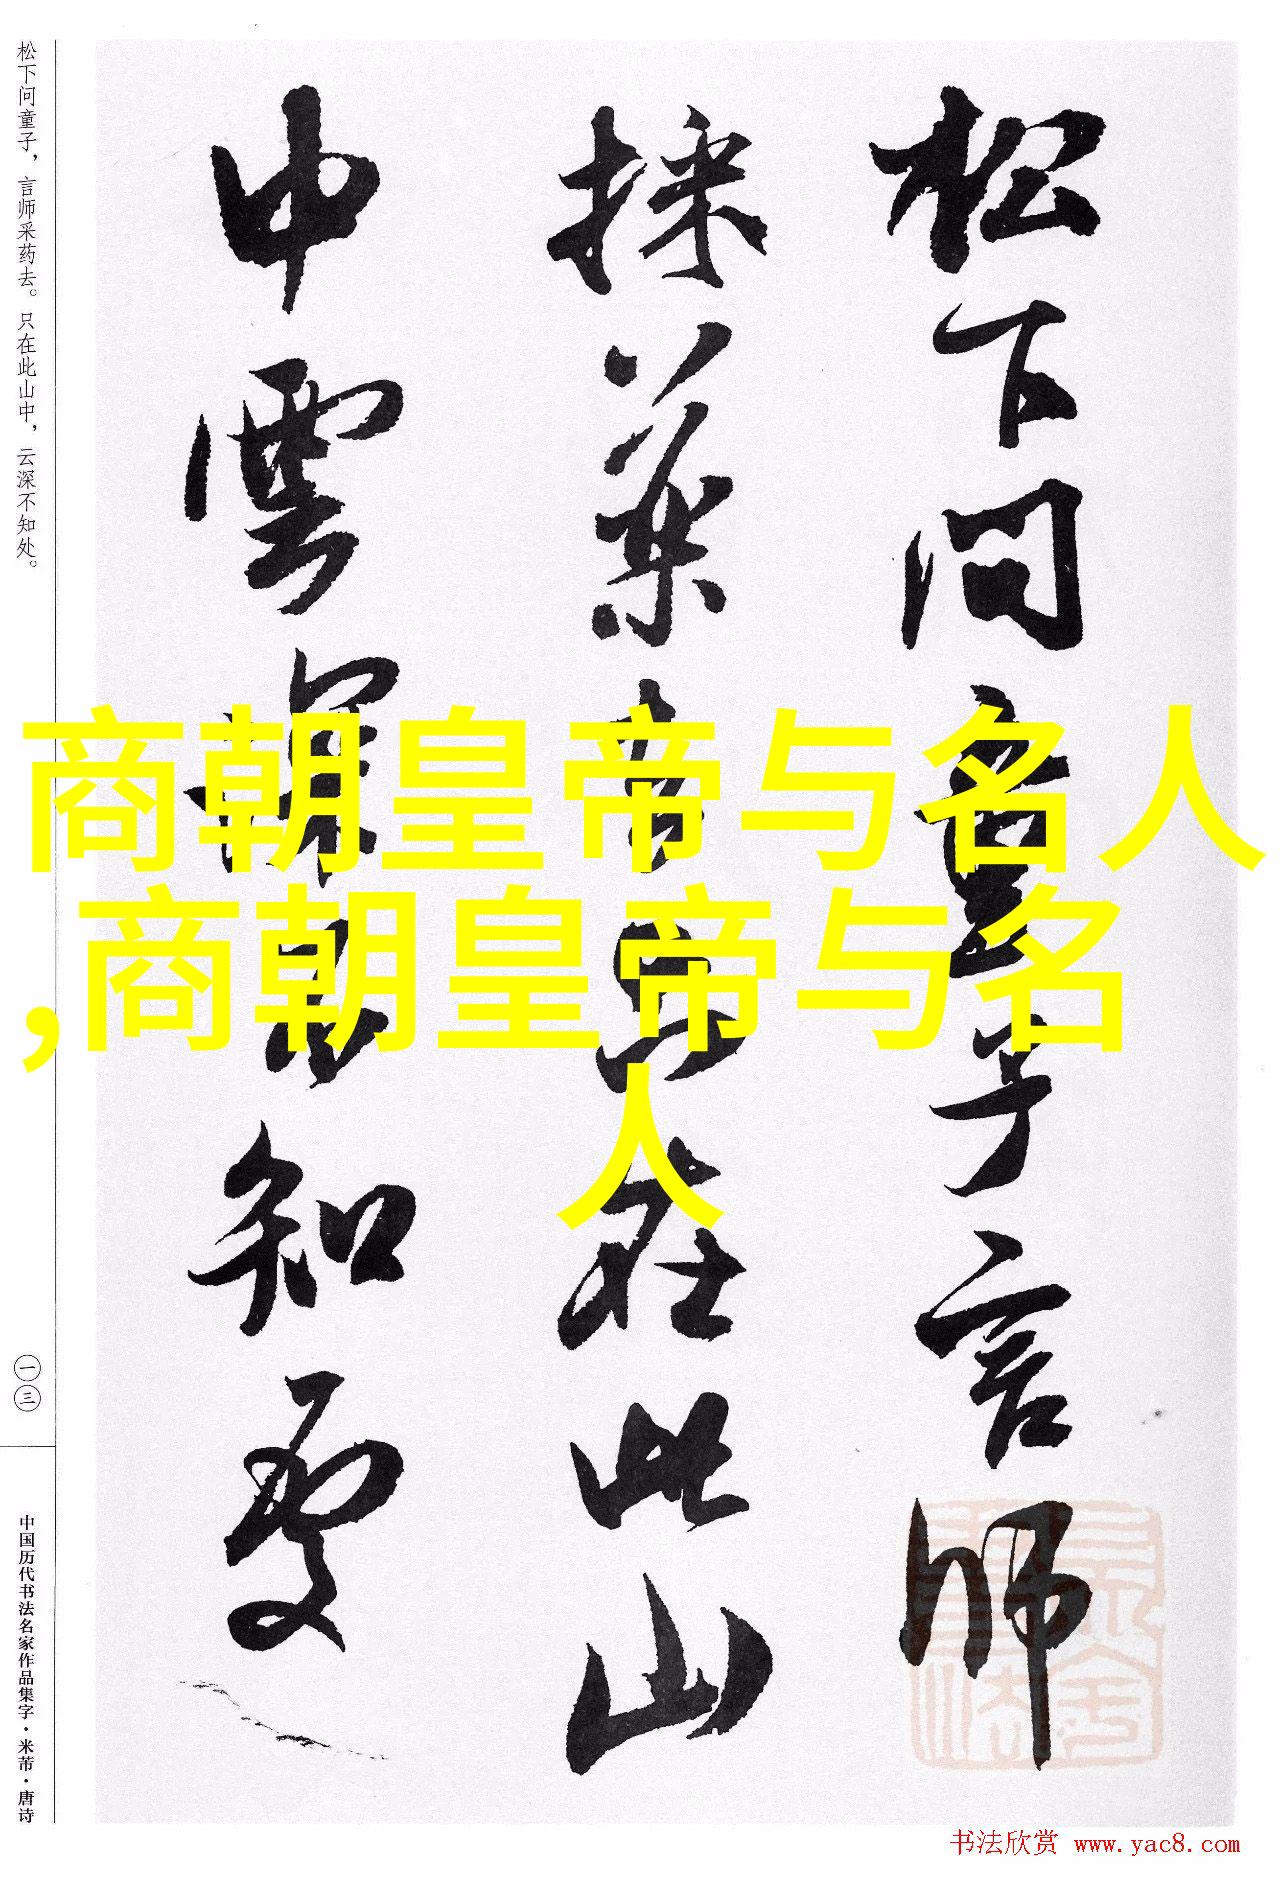 松下问童子，言师采药去。只在此山中，云深不知处。
一三
中国历代书法名家作品集字·米芾·唐诗
松下问童子言师
採药去只在此山
中雲深不知处
商朝皇帝与名人
,商朝皇帝与名
人
书法欣赏 www.yac8.com